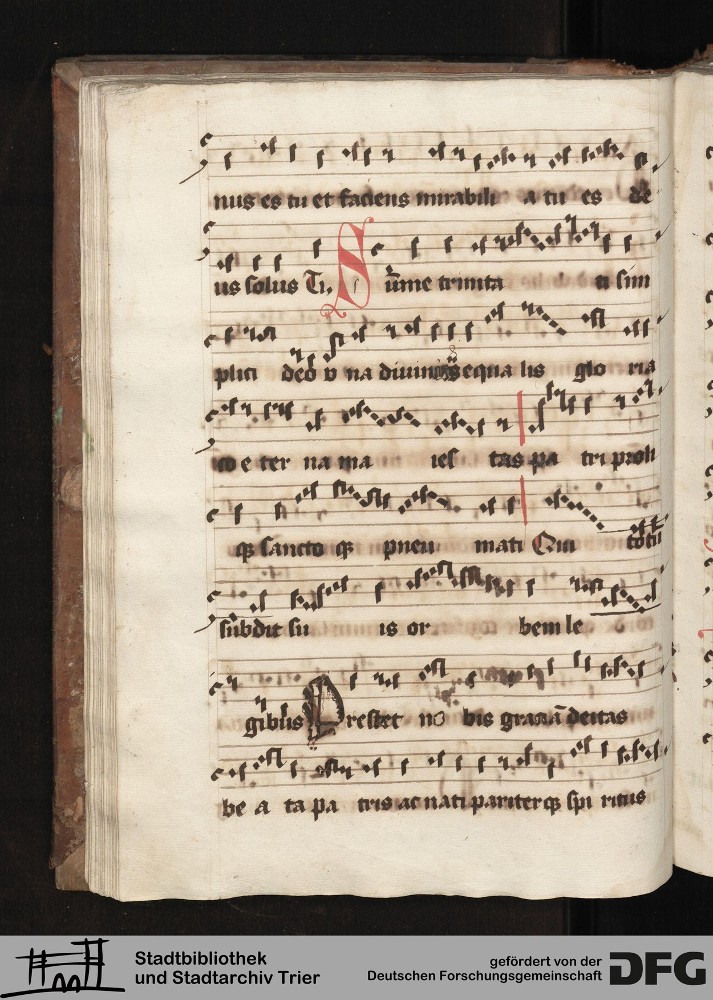 nus es tu et faciens mirabili a tu es de
us solus Ti. Sūme trinita ti sim
plici deo v na diuinitas equa lis glo ria
co e ter na ma ies tas pa tri proli
qꝫ sancto qꝫ pneu mati Qui totū
subdit su is or bem le
gibus Prestet nobis gratiā deitas
be a ta pa tris ac nati pariterqꝫ spi ritus
Stadtbibliothek
und Stadtarchiv Trier
gefördert von der
Deutschen Forschungsgemeinschaft
DFG